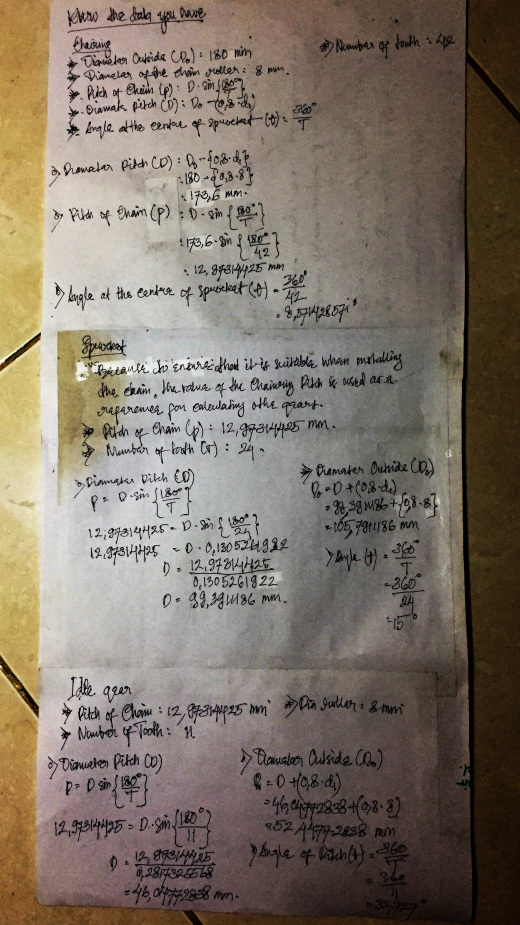 Know the data you have
Chainring
⇒ Diameter Outside (D₀) : 180 mm
⇒ Number of tooth : 42
⇒ Diameter of the chain roller : 8 mm.
⇒ Pitch of Chain (p) : D · sin {180°/T}
⇒ Diamate pitch (D) : D₀ - (0,8·d₁)
⇒ Angle at the centre of sprocket (θ) = 360°/T
⇒ Diameter Pitch (D) : D₀ - {0,8·d₁}
: 180 - {0,8·8}
: 173,6 mm.
⇒ Pitch of Chain (p) : D · sin {180°/T}
: 173,6 · sin {180°/42}
: 12,97314425 mm
⇒ Angle at the centre of sprocket (θ) = 360°/42
= 8,571428571°
Sprocket
"Because to ensure that it is suitable when installing
the chain, the value of the Chainring Pitch is used as a
reference for calculating othe gears.
⇒ Pitch of Chain (p) : 12,97314425 mm.
⇒ Number of tooth (T) : 24.
⇒ Diamater Pitch (D)
P = D · sin {180°/T}
12,97314425 = D · sin {180°/24}
12,97314425 = D · 0,1305261922
D = 12,97314425/0,1305261922
D = 99,3911186 mm.
⇒ Diamater Outside (D₀)
D₀ = D + (0,8·d₁)
= 99,3911186 + {0,8·8}
= 105,7911186 mm
⇒ Angle (θ) = 360°/T
= 360°/24
= 15°
Idle gear
⇒ Pitch of Chain : 12,97314425 mm
⇒ Dia roller : 8 mm
⇒ Number of Tooth : 11
⇒ Diamater Pitch (D)
P = D sin {180°/T}
12,97314425 = D · sin {180°/11}
D = 12,97314425/0,2817325568
= 46,04772838 mm.
⇒ Diamater Outside (D₀)
D₀ = D + (0,8·d₁)
= 46,04772838 + (0,8·8)
= 52,44772838 mm
⇒ Angle of Pitch (θ) = 360°/T
= 360°/11
= 32,727°